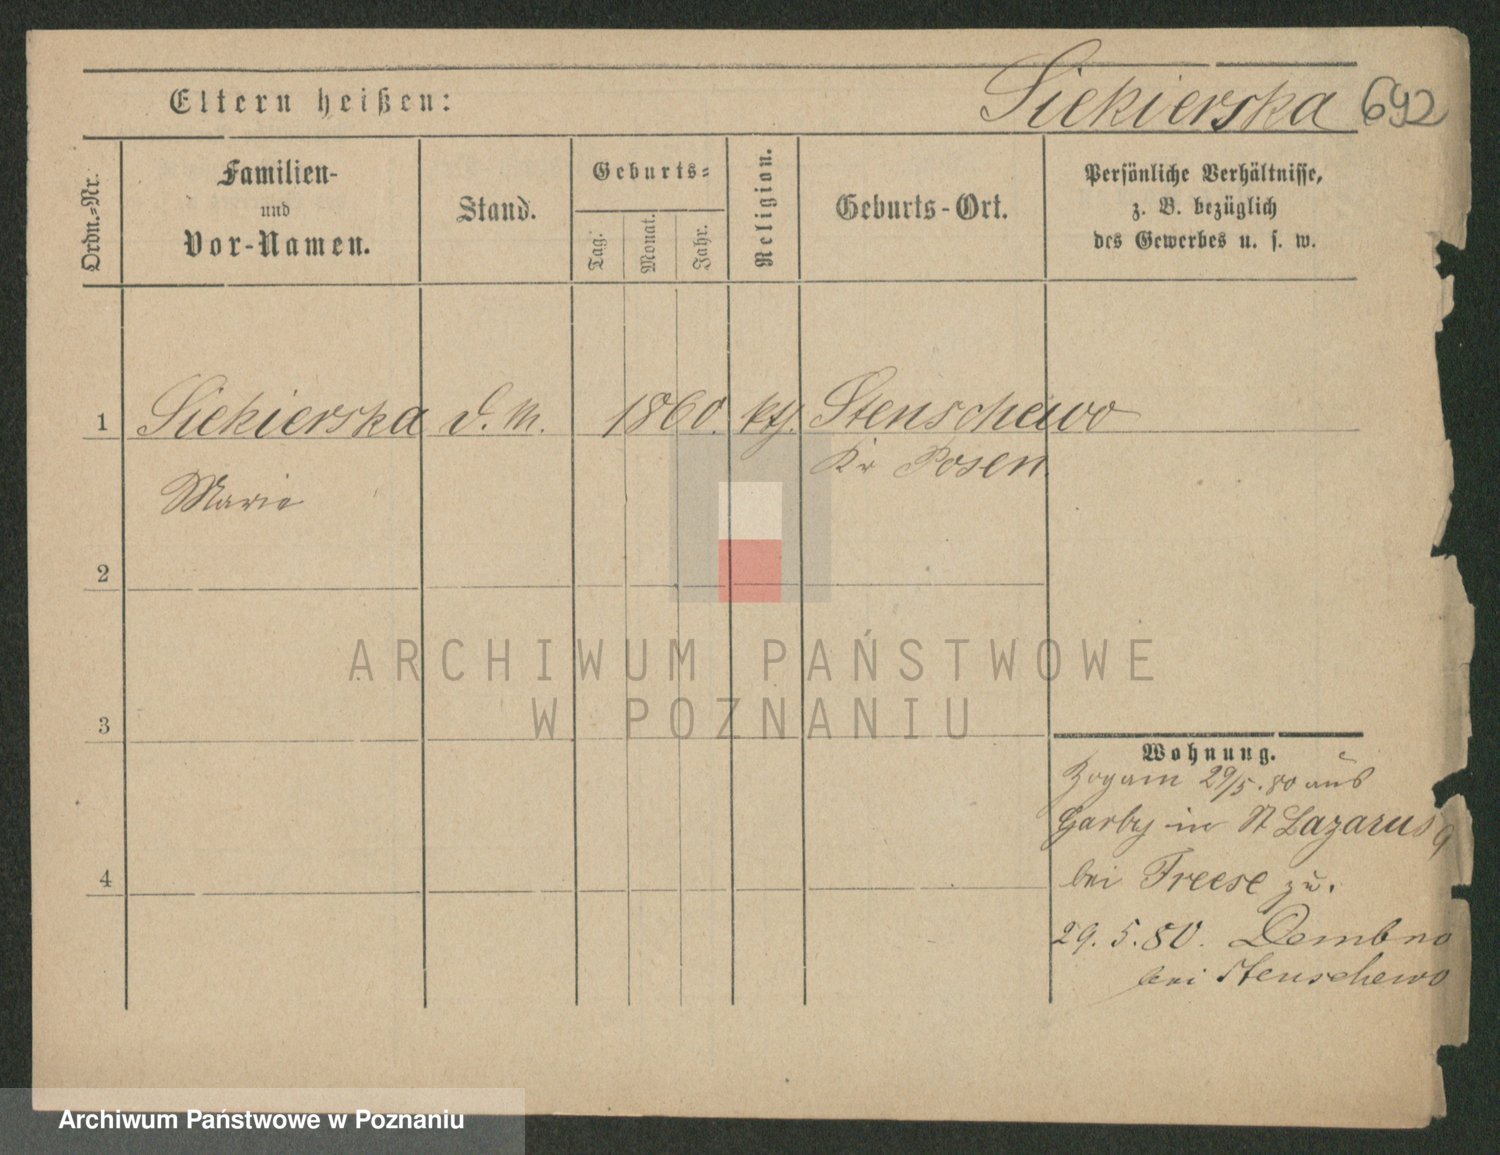 Siekierska 692
Eltern heißen:
Ordn.=Nr.
Familien-
und
Vor-Namen.
Stand.
Geburts=
Tag.
Monat.
Jahr.
Religion.
Geburts-Ort.
Persönliche Verhältnisse,
z. B. bezüglich
des Gewerbes u. s. w.
1 Siekierska d. M. 1860. kth. Stenschewo
Kr Posen
Marie
2
3
4
Wohnung.
Zugam 29/5.80 aus
Garby in St Lazarus 9
bei Freese zu.
29.5.80. Dembno
bei Stenschewo
ARCHIWUM PAŃSTWOWE
W POZNANIU
Archiwum Państwowe w Poznaniu